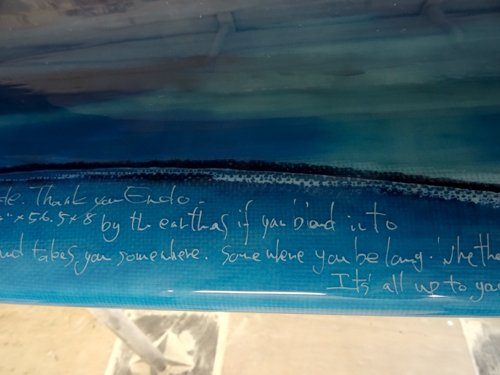 de. Thank you Endo.
"x56.5x8 by the earth as if you into
nd takes you somewhere. Somewhere you belong. Whethe
It's all up to you